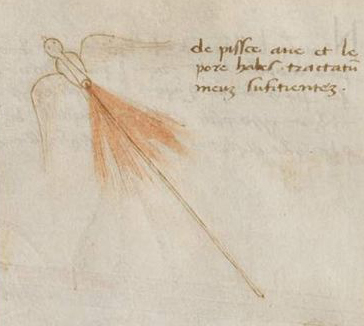 de pissce aue et le
pore habes tractatū
meuz sufitientez.